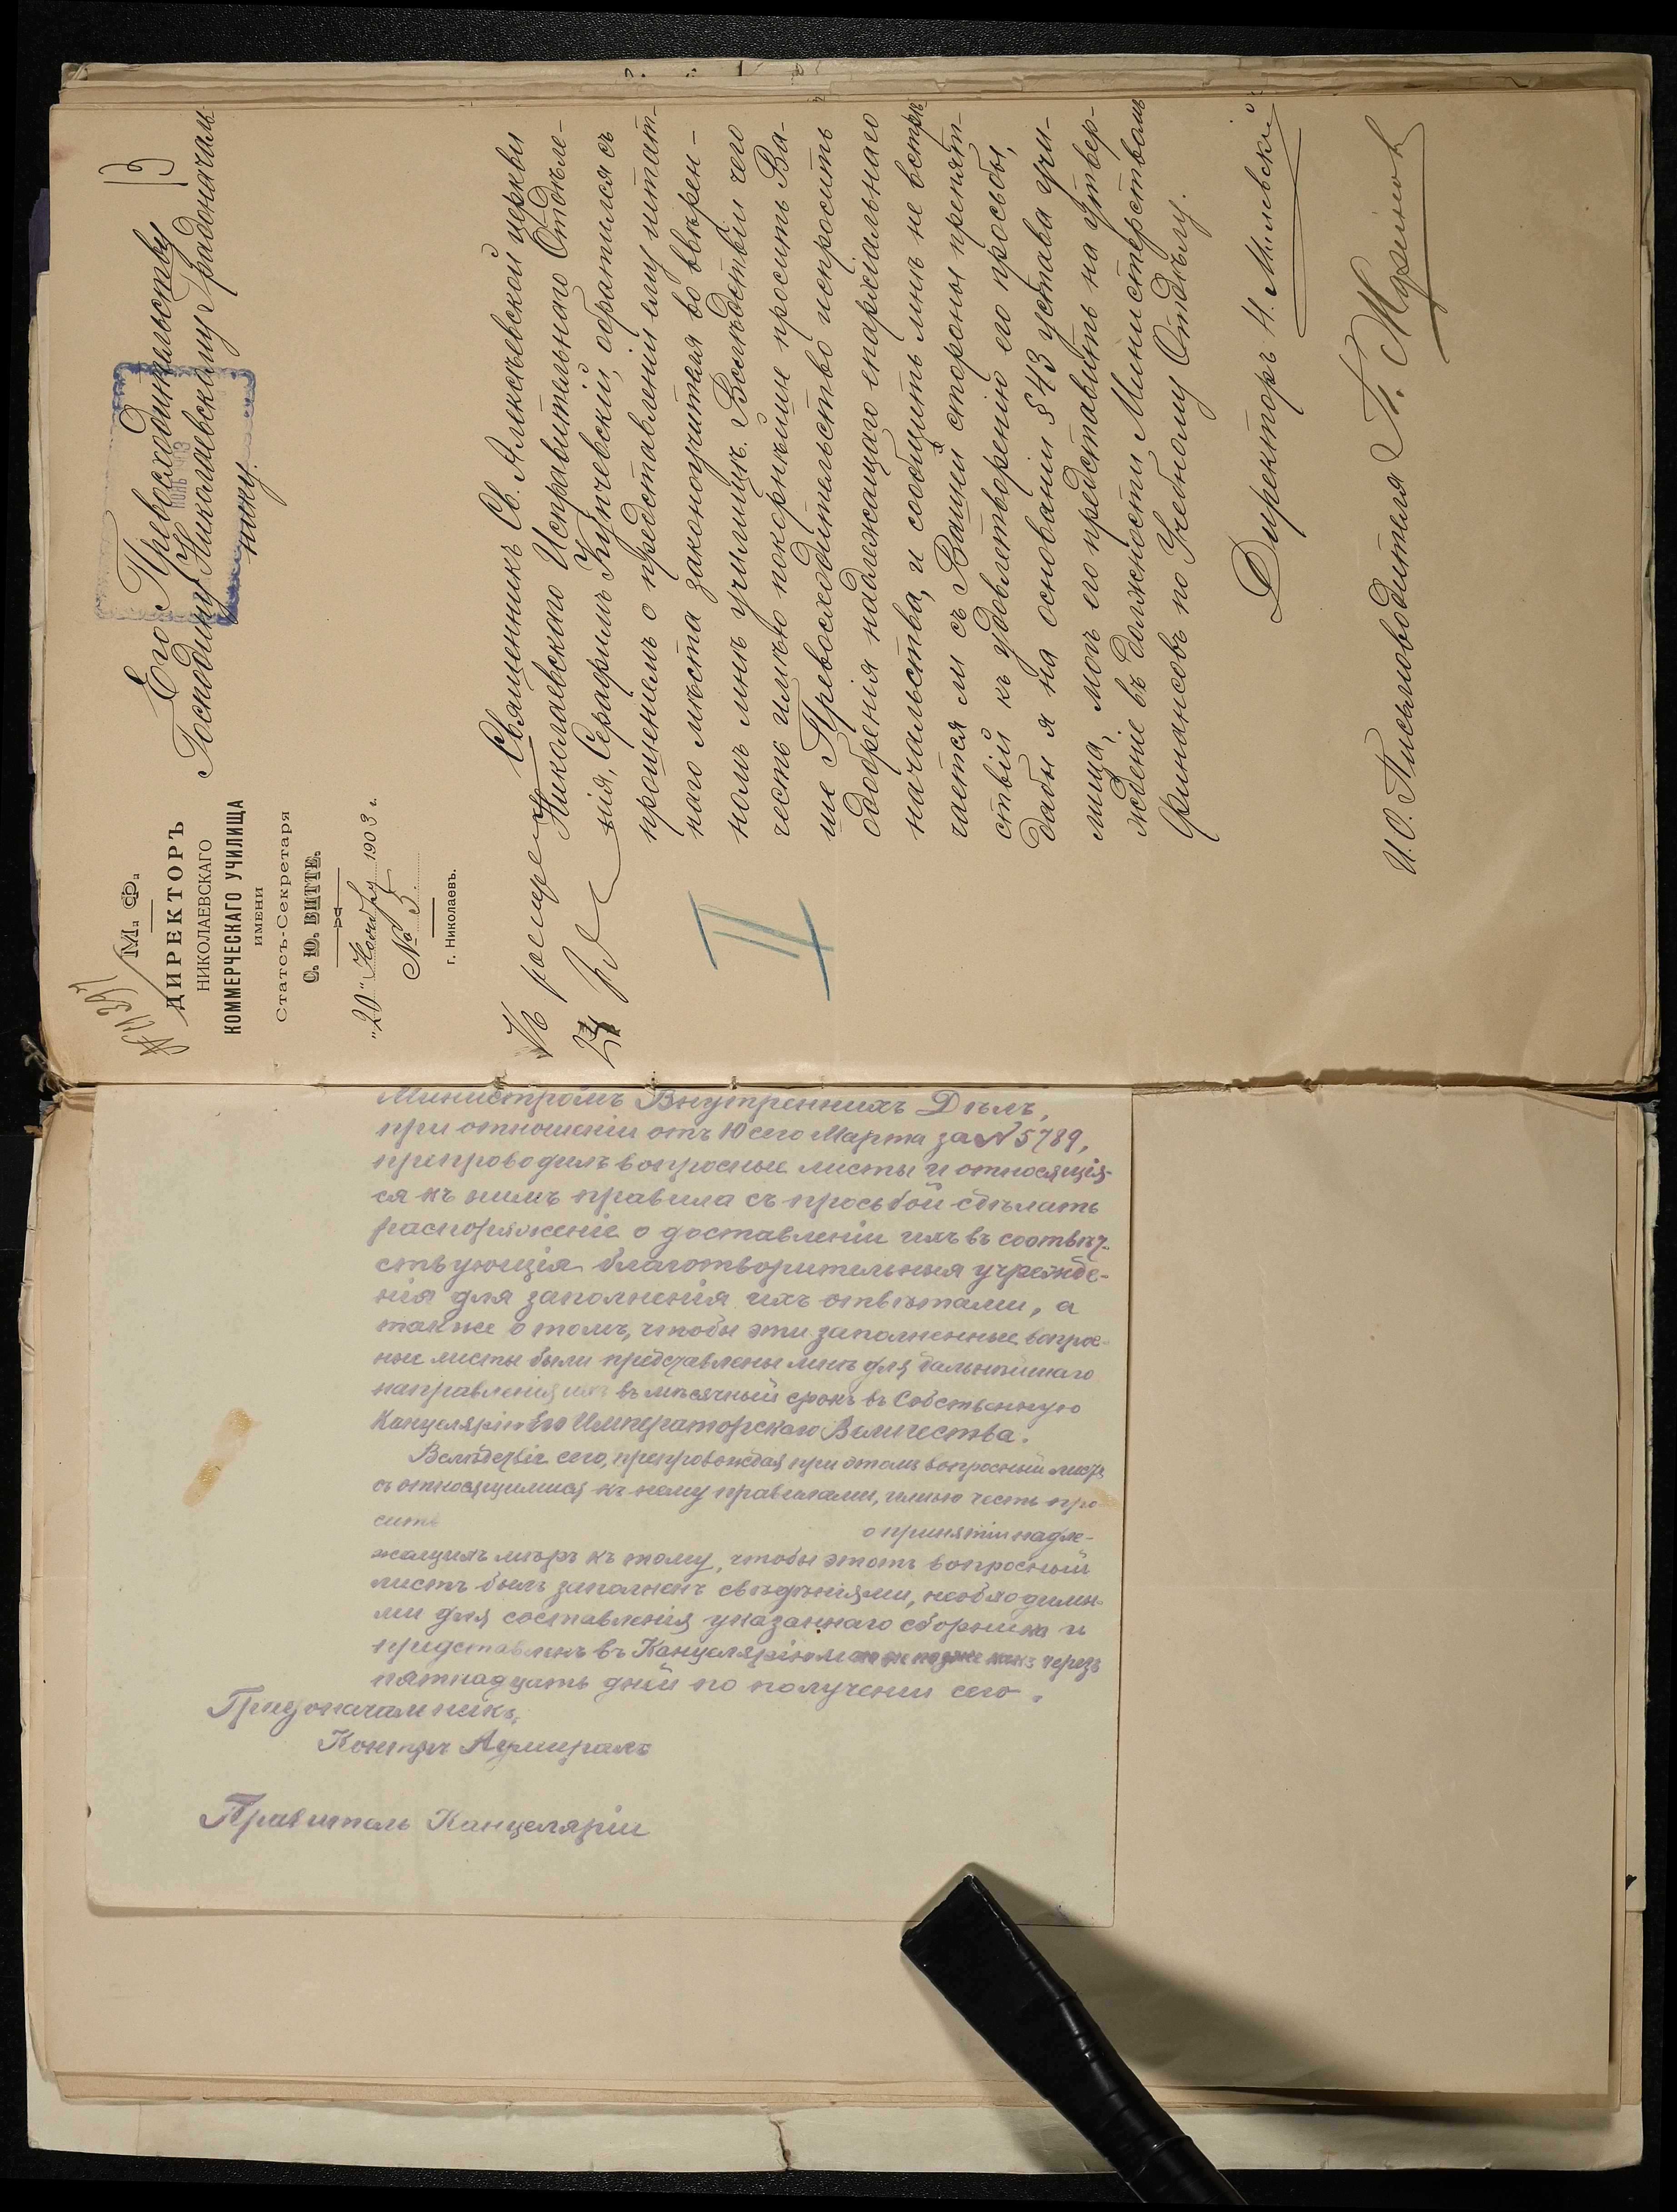 М. Ф.
ДИРЕКТОРЪ
НИКОЛАЕВСКАГО
КОММЕРЧЕСКАГО УЧИЛИЩА
ИМЕНИ
Статсъ-Секретаря
С. Ю. ВИТТЕ.
„20" Ноября 1903 г.
№ 5.
г. Николаевъ.
13
Его Превосходительству
Господину Николаевскому Градоначаль
нику.
Священникъ Св. Алексѣевской церкви
Николаевскаго Исправительнаго Отдѣле-
нія, Серафимъ Купчевскій, обратился съ
прошеніемъ о представленіи ему штат-
наго мѣста законоучителя во ввѣрен-
номъ мнѣ училищѣ. Вслѣдствіи чего
честь имѣю покорнѣйше просить Ва-
ше Превосходительство испросить
одобренія надлежащаго епархіальнаго
начальства, и сообщить мнѣ не встрѣ
чается ли съ Вашей стороны препят-
ствій къ удовлетворенію его просьбы,
дабы я на основаніи § 43 устава учи-
лища, могъ его представить на утвер-
жденіе въ должности Министерствомъ
Финансовъ по Учебному Отдѣлу.
Директоръ Н. Милевскій
И. О. Письмоводителя П.
II
Министромъ Внутреннихъ Дѣлъ,
при отношеніи отъ 10 сего Марта за № 5789,
препроводилъ вопросные листы и относящія-
ся къ нимъ правила съ просьбой сдѣлать
распоряженіе о доставленіи ихъ въ соотвѣт-
ствующія благотворительныя учрежде-
нія для заполненія ихъ отвѣтами, а
также о томъ, чтобы эти заполненные вопрос-
ные листы были представлены мнѣ для дальнѣйшаго
направленія ихъ въ мѣсячный срокъ въ Собственную
Канцелярію Его Императорскаго Величества.
Вслѣдствіе сего, препровождая при этомъ вопросный листъ
съ относящимися къ нему правилами, имѣю честь про-
сить о принятіи надле-
жащихъ мѣръ къ тому, чтобы этотъ вопросный
листъ былъ заполненъ свѣдѣніями, необходимы-
ми для составленія указаннаго сборника и
представленъ въ Канцелярію мою не позже какъ черезъ
пятнадцать дней по полученіи сего.
Градоначальникъ,
Контръ Адмиралъ
Правитель Канцеляріи